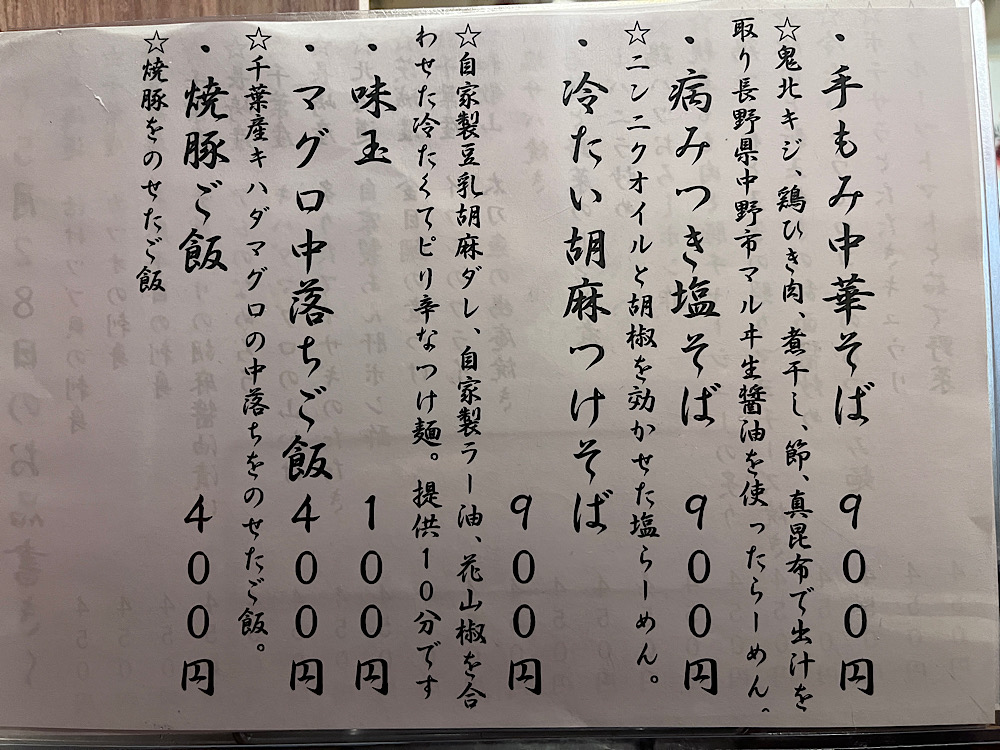 ・手もみ中華そば ９００円
☆鬼北キジ、鶏ひき肉、煮干し、節、真昆布で出汁を
取り長野県中野市マルヰ生醤油を使ったらーめん。
・病みつき塩そば ９００円
☆ニンニクオイルと胡椒を効かせた塩らーめん。
・冷たい胡麻つけそば
９００円
☆自家製豆乳胡麻ダレ、自家製ラー油、花山椒を合
わせた冷たくてピリ辛なつけ麺。提供１０分です
・味玉 １００円
・マグロ中落ちご飯４００円
☆千葉産キハダマグロの中落ちをのせたご飯。
・焼豚ご飯 ４００円
☆焼豚をのせたご飯